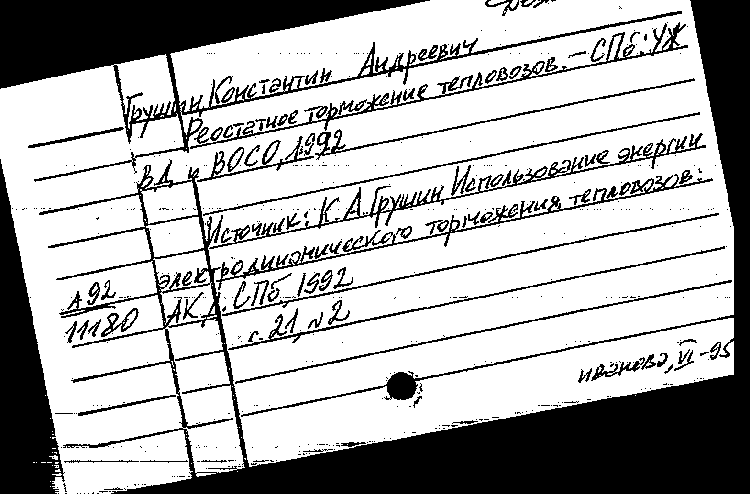 Грушин, Константин Андреевич
Реостатное торможение тепловозов. – СПб.: УЖ
ВД и ВОСО, 1992
Источник: К.А. Грушин, Использование энергии
электродинамического торможения тепловозов:
А92
11180
АКД. СПб, 1992
с. 21, №2
Иванова, VI-95